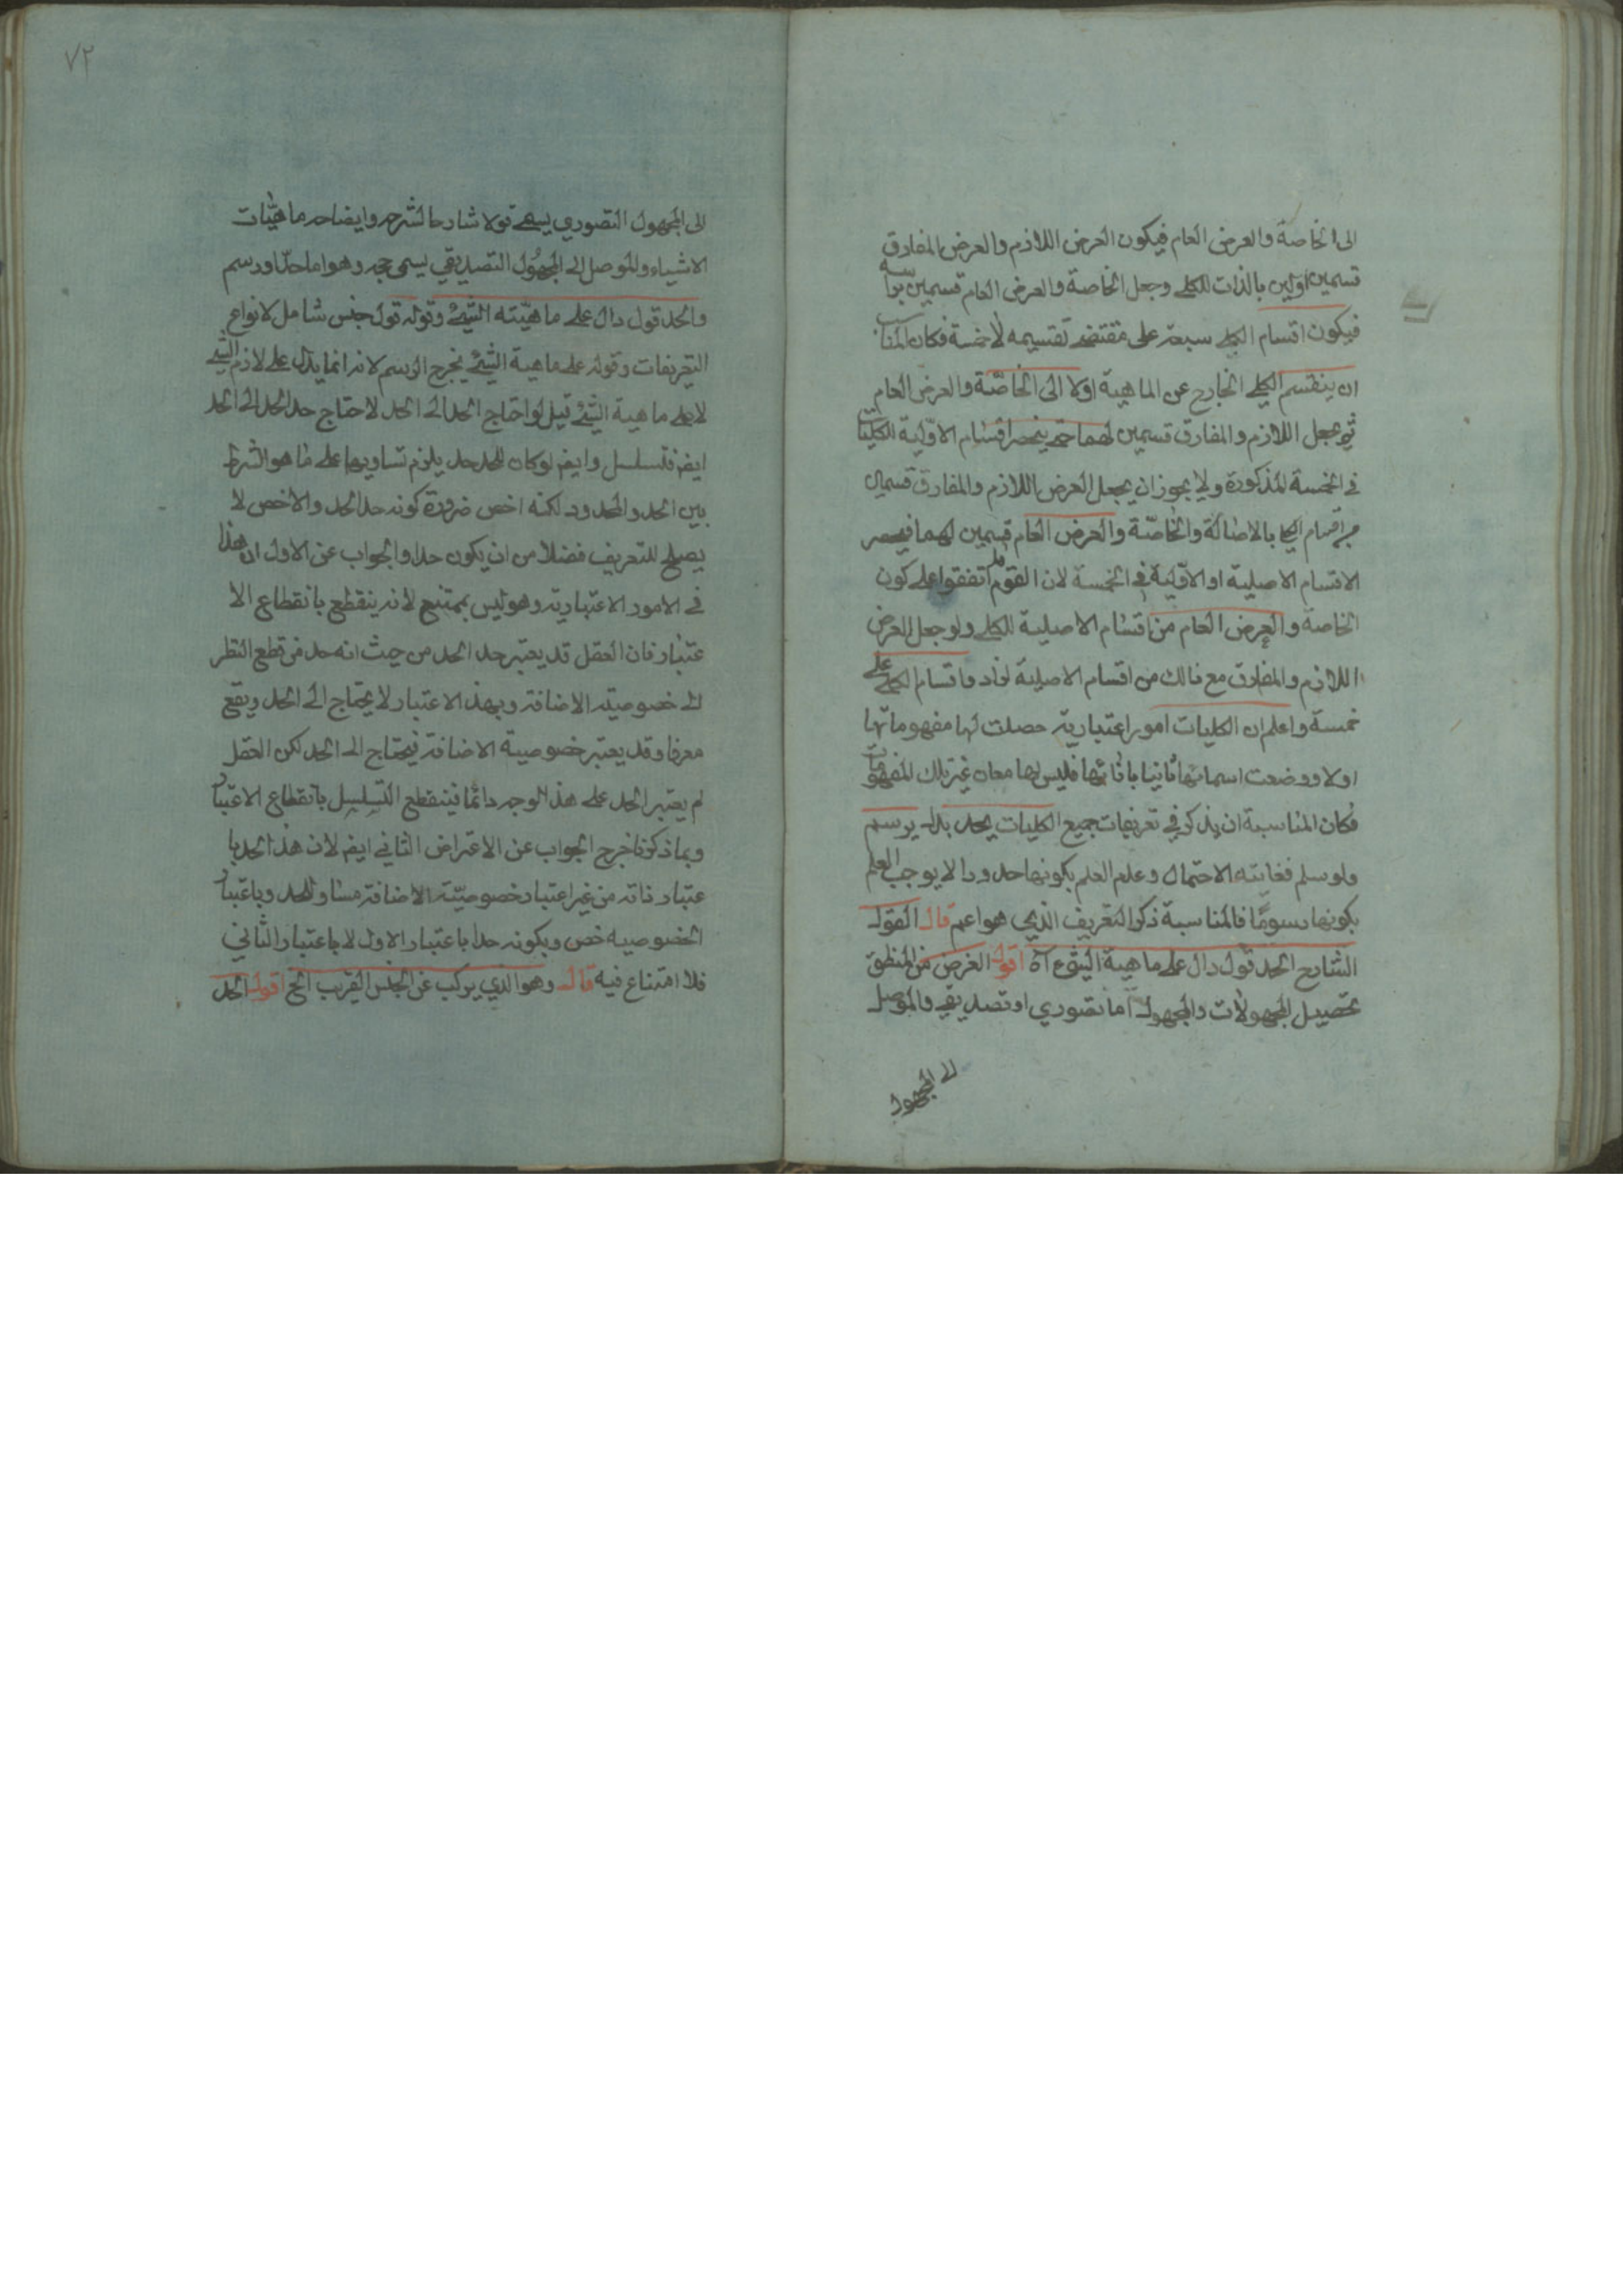 الى الخاصة والعرض العام فيكون العرض اللازم والعرض المفارق
قسمين اولين بالذات للكلى وجعل الخاصة والعرض العام قسمين بواسطة
فيكون اقسام الكلى سبعة على مقتضى تقسيمه لا خمسة فكان المناسب
ان ينقسم الكلى الخارج عن الماهية اولا الى الخاصّة والعرض العام
ثم يجعل اللازم والمفارق قسمين لهما حتى ينحصر اقسام الاوّلية الكليّات
فى الخمسة المذكورة ولا يجوز ان يجعل العرض اللازم والمفارق قسمان
من اقسام الكلى بالاصالة والخاصّة والعرض العام قسمين لهما فينحصر
الاقسام الاصلية او الاوّلية فى الخمسة لان القوم اتفقوا على كون
الخاصة والعرض العام من اقسام الاصلية للكلى ولو جعل العرض
اللازم والمفارق مع ذالك من اقسام الاصلية لزاد اقسام الكلى على
خمسة واعلم ان الكليات امور اعتبارية حصلت لها مفهوماتها
اولا ووضعت اسمائها ثانيا بازائها فليس لها معان غير تلك المفهومات
فكان المناسبة ان يذكر في تعريفات جميع الكليات يحد بدل يرسم
ولو سلم فغايته الاحتمال وعدم العلم بكونها حدودا لا يوجب العلم
بكونها رسومًا فالمناسبة ذكر التعريف الذي هو اعم قال القول
الشارح الحد قول دال على ماهية الشئ اه اقول الغرض من المنطق
تحصيل المجهولات والمجهول اما تصوري او تصديقي والموصل
الى المجهول
٧٢
الى المجهول التصوري يسمى قولا شارحا لشرحه وايضاحه ماهيّات
الاشياء والموصل الى المجهول التصديقي يسمى حجة وهو اما حدّ او رسم
والحد قول دال على ماهيّته الشئ وقوله قول جنس شامل لانواع
التعريفات وقوله على ماهية الشئ يخرج الرسم لانه انما يدل على لازم الشئ
لا على ماهية الشئ قيل لو احتاج الحد الى الحد لاحتاج حد الحد الى الحد
ايضا فتسلسل وايضا لو كان للحد حد يلزم تساويهما على ما هو الشرط
بين الحد والمحدود لكنه اخص ضرورة كونه حد الحد والاخص لا
يصلح للتعريف فضلا من ان يكون حدا والجواب عن الاول ان هذا
فى الامور الاعتبارية وهو ليس بممتنع لانه ينقطع بانقطاع الا
عتبار فان العقل قد يعتبر حد الحد من حيث انه حد من قطع النظر
الى خصوصيته الاضافة وبهذا الاعتبار لا يحتاج الى الحد ويقع
معرفا وقد يعتبر خصوصية الاضافة فيحتاج الى الحد لكن العقل
لم يعتبر الحد على هذا الوجه دائما فينقطع التسلسل بانقطاع الاعتبار
وبما ذكرنا خرج الجواب عن الاعتراض الثاني ايضا لان هذا الحد با
عتبار ذاته من غير اعتبار خصوصيّته الاضافة مساو للحد وباعتبار
الخصوصيه خص ويكونه حدا باعتبار الاول لا باعتبار الثاني
فلا امتناع فيه قال وهو الذي يركب عن الجنس القريب الخ اقول الحد